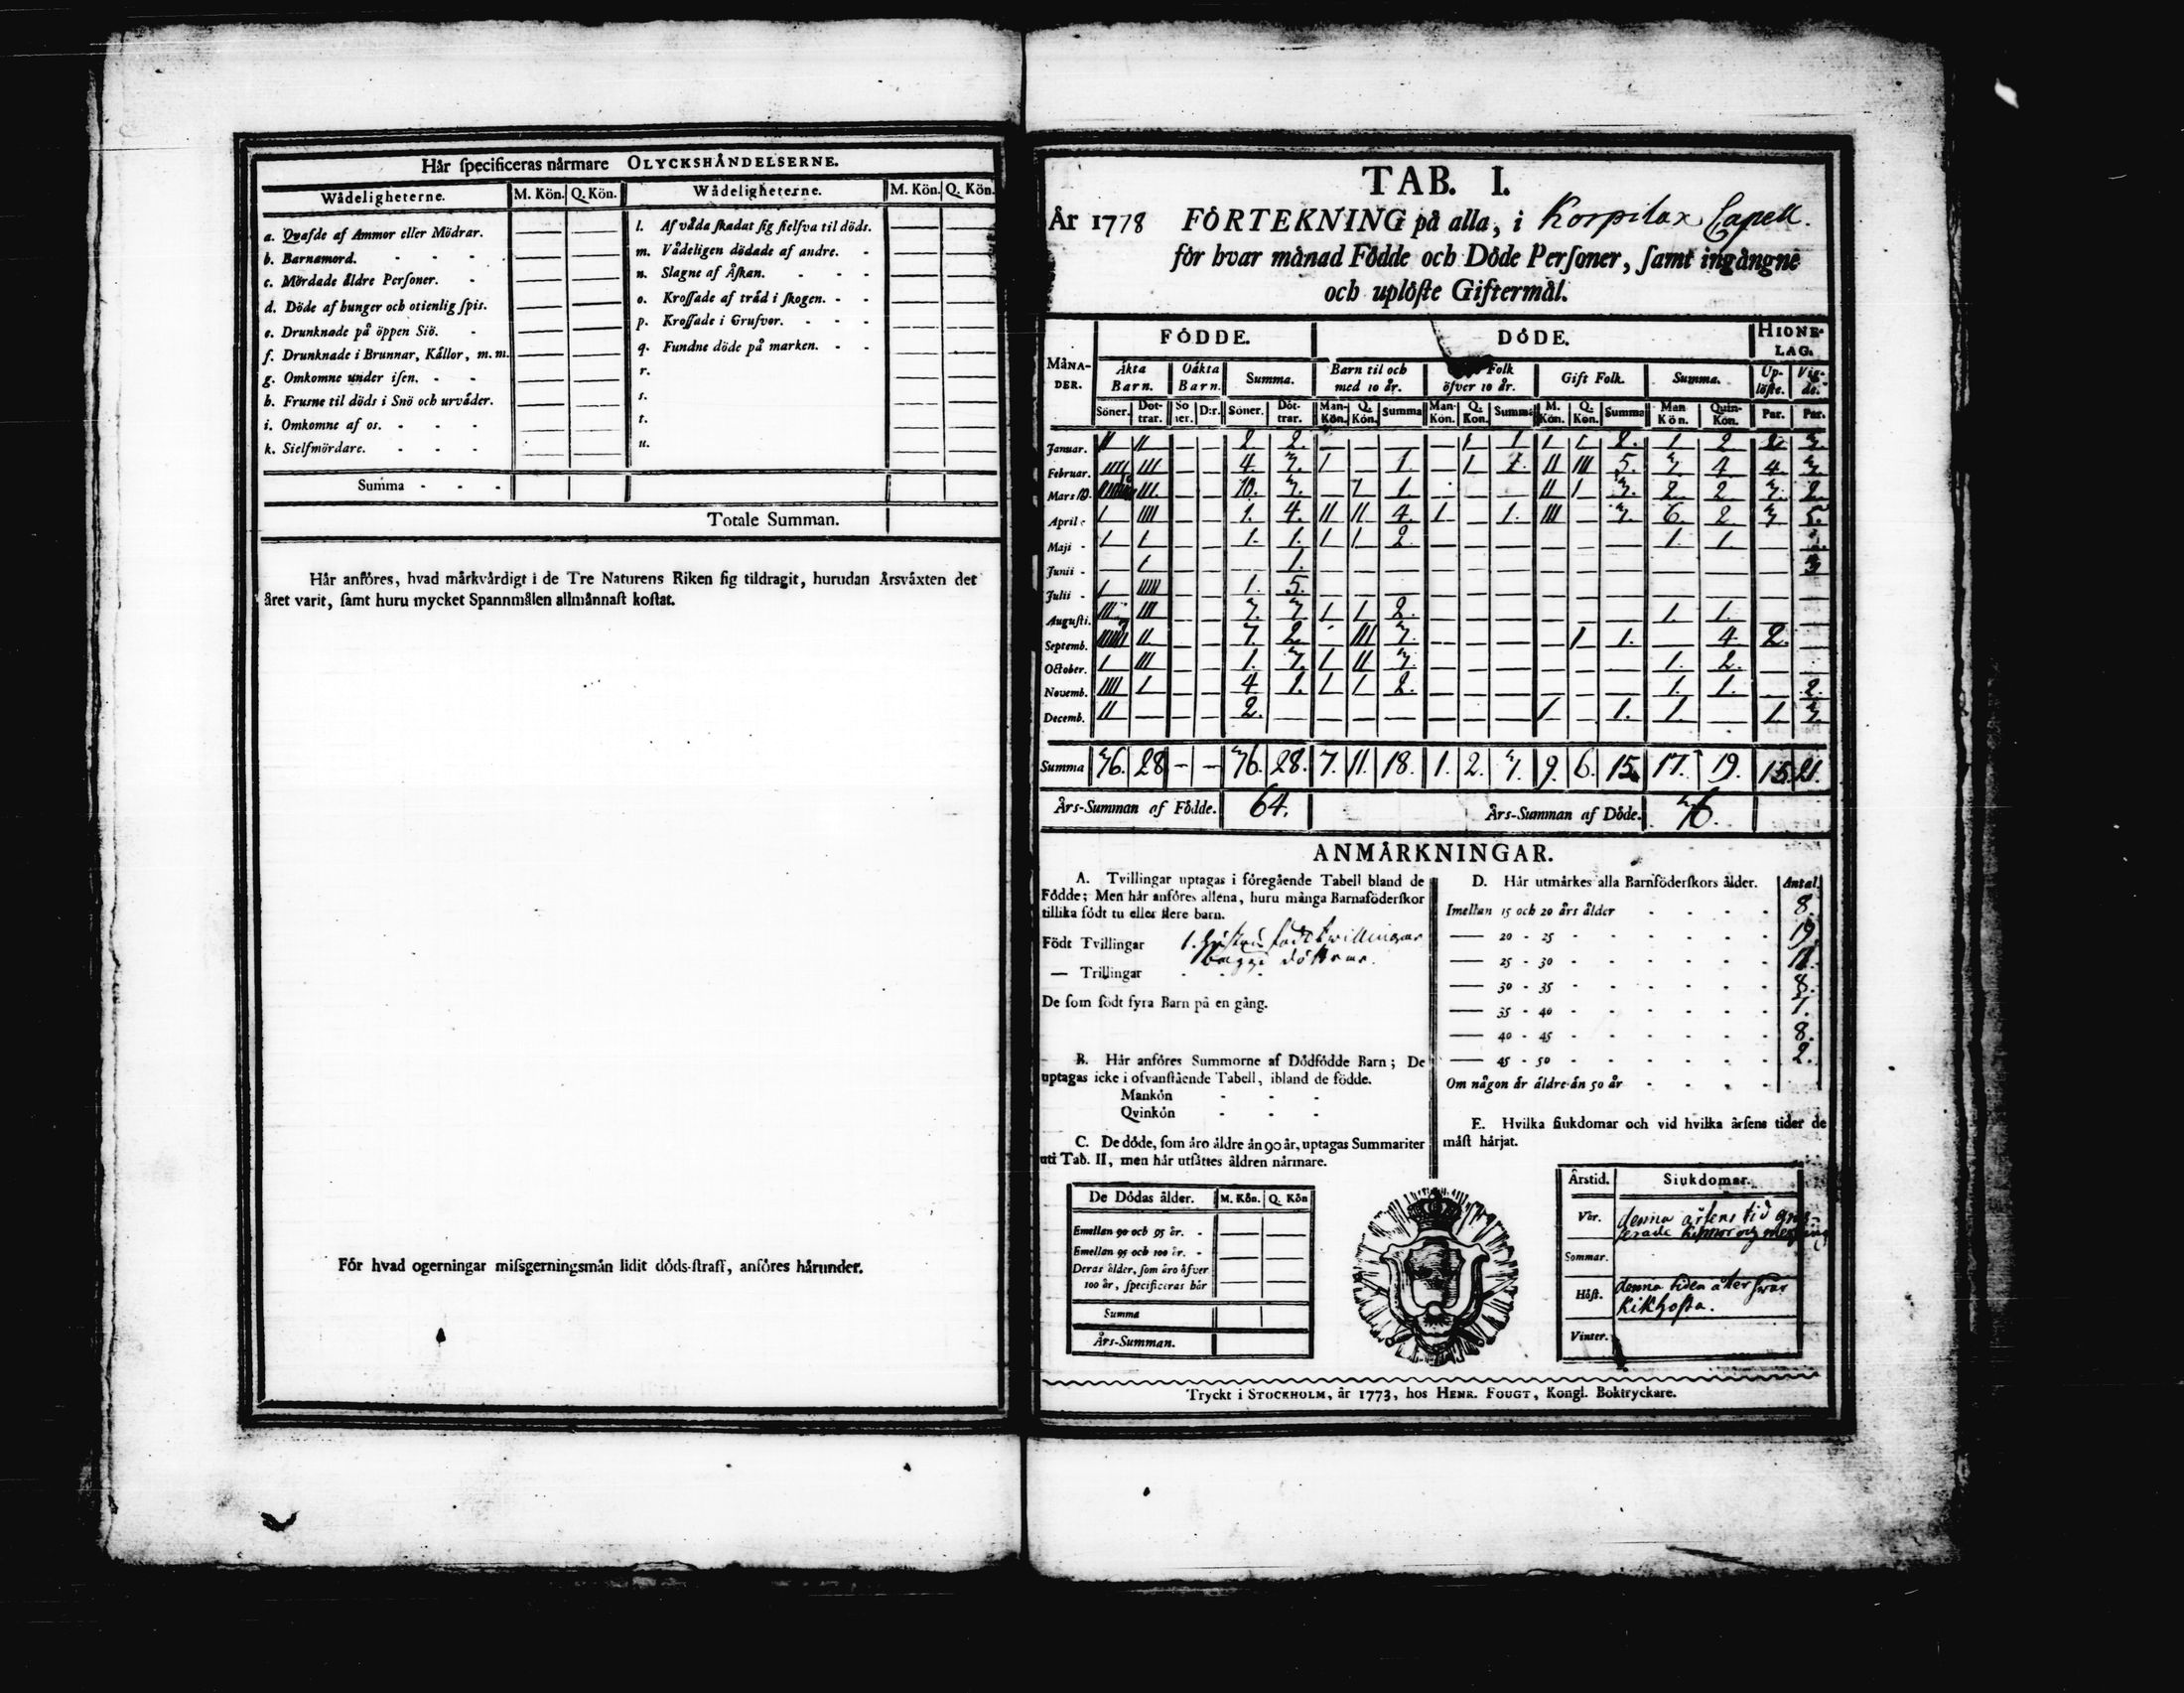 Hår ſpecificeras nårmare OLYCKSHÅNDELSERNE.
Wådeligheterne. M. Kön. Q. Kön. Wådeligheterne. M. Kön. Q. Kön.
a. Qvafde af Ammor eller Mödrar. — — l. Af våda ſkadat ſig ſielfva til döds. — —
b. Barnamord. - - - — — m. Vådeligen dödade af andre. - — —
c. Mördade åldre Perſoner. - — — n. Slagne af Åſkan. - - - — —
d. Döde af hunger och otienlig ſpis. — — o. Kroſſade af tråd i ſkogen. - - — —
e. Drunknade på öppen Siö. - — — p. Kroſſade i Grufvor. - - - — —
f. Drunknade i Brunnar, Kållor, m. m. — — q. Fundne döde på marken. - - — —
g. Omkomne under iſen. - - — — r. — —
h. Fruſne til döds i Snö och urvåder. — — s. — —
i. Omkomne af os. - - - — — t. — —
k. Sielfmördare. - - - — — u. — —
Summa - - -
Totale Summan.
Hår anföres, hvad mårkvårdigt i de Tre Naturens Riken ſig tildragit, hurudan Årsvåxten det
året varit, ſamt huru mycket Spannmålen allmånnaſt koſtat.
För hvad ogerningar miſsgerningsmån lidit döds-ſtraff, anföres hårunder.
TAB. I.
År 1778 FÖRTEKNING på alla, i Korpilax Capell.
för hvar månad Födde och Döde Perſoner, ſamt ingångne
och uplöſte Giftermål.
FÖDDE. DÖDE. HIONE-
LAG.
MÅNA-
DER.
Äkta Barn. Oåkta Barn. Summa. Barn til och med 10 år. Folk öfver 10 år. Gift Folk. Summa. Up-
löſte. Vig-
de.
Söner. Döt-
trar. Sö
ner. D:r. Söner. Döt-
trar. Man-
Kön. Q.
Kön. Summa Man-
Kön. Q.
Kon. Summa M.
Kön. Q.
Kon. Summa Man
Kön. Quin-
Kön. Par. Par.
Januar. II II — — 2 2. — — — — 1 1 1 1 2. 1 2 2 3.
Februar. IIII III — — 4 3. 1 — 1. — 1 1. II III 5. 3. 4 4 3.
Mars 10. III. — — 10. 3. — 1 1. II 1 3. 2 2 3. 2
April 1 IIII — — 1. 4. II II 4. 1 — 1. III — 3. 6. 2 3 5.
Maji - 1 1 — — 1. 1. 1 1 2. — — — — — — 1. 1. —
Junii - — 1 — — 1. — — — — — — — — — — — — 3
Julii - 1 IIIII — — 1. 5. — — — — — — — — — — — — —
Auguſti. III. III — — 3. 3 1 1 2. — — — — — — 1. 1. — —
Septemb. 7 II — — 7. 2 III 3. — — — — 1 1. — 4 2. —
October. 1 III — — 1. 3. 1 II 3. — — — — — — 1. 2. —
Novemb. IIII 1 — — 4 1. 1 1 2. — — — — — — 1. 1. — 2.
Decemb. II — — — 2. — — — — — — — 1 — 1. 1. — 1. 3.
Summa 36. 28 — — 36. 28. 7. 11. 18. 1. 2. 3. 9. 6. 15. 17. 19. 15. 21.
Års-Summan af Födde. 64. Års-Summan af Döde. 36.
ANMÅRKNINGAR.
A. Tvillingar uptagas i föregående Tabell bland de
Födde; Men hår anföres allena, huru många Barnaföderſkor
tillika födt tu eller flere barn.
Födt Tvillingar 1. hustru födt twillingar
bägge döttrar.
— Trillingar - -
De ſom födt fyra Barn på en gång.
B. Hår anföres Summorne af Dödfödde Barn; De
uptagas icke i ofvanſtående Tabell, ibland de födde.
Mankön - - -
Qvinkön - - -
C. De döde, ſom åro åldre ån 90 år, uptagas Summariter
uti Tab. II, men hår utſåttes åldren nårmare.
De Dödas ålder. M. Kön. Q. Kön
Emellan 90 och 95 år. - — —
Emellan 95 och 100 år. - — —
Deras ålder, ſom åro öfver
100 år, ſpecificeras hår — —
Summa
Års-Summan.
D. Hår utmårkes alla Barnföderſkors ålder. Antal.
Imellan 15 och 20 års ålder - - - - 8.
— 20 - 25 - - - - - - 19
— 25 - 30 - - - - - - 11.
— 30 - 35 - - - - - - 8.
— 35 - 40 - - - - - - 7.
— 40 - 45 - - - - - - 8.
— 45 - 50 - - - - - - 2.
Om någon år åldre ån 50 år - - - -
E. Hvilka ſiukdomar och vid hvilka årſens tider de
måſt hårjat.
Årstid. Siukdomar.
Vår. denna årſens tid gras-
ſerade
Sommar.
Höſt. denna tiden åter ſwår
Kikhoſta.
Vinter.
Tryckt i STOCKHOLM, år 1773, hos HENR. FOUGT, Kongl. Boktryckare.